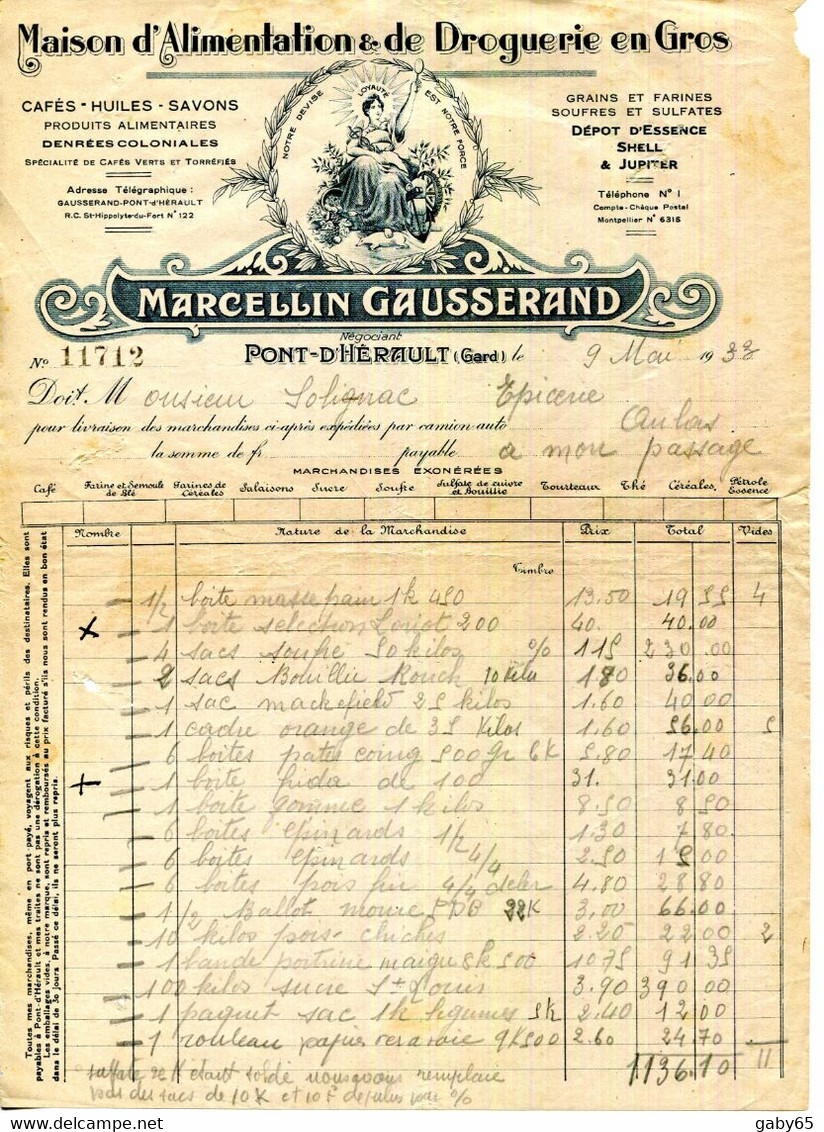 Maison d'Alimentation & de Droguerie en Gros
CAFÉS - HUILES - SAVONS
PRODUITS ALIMENTAIRES
DENRÉES COLONIALES
SPÉCIALITÉ DE CAFÉS VERTS ET TORRÉFIÉS
Adresse Télégraphique :
GAUSSERAND-PONT-D'HÉRAULT
R.C. St-Hippolyte-du-Fort N° 122
NOTRE DEVISE LOYAUTÉ EST NOTRE FORCE
GRAINS ET FARINES
SOUFRES ET SULFATES
DÉPOT D'ESSENCE
SHELL
& JUPITER
Téléphone N° 1
Compte-Chèque Postal
Montpellier N° 6315
MARCELLIN GAUSSERAND
Négociant
N° 11712 PONT-D'HÉRAULT (Gard) le 9 Mai 1933
Doit M onsieur Solignac Epicerie
Aulas
pour livraison des marchandises ci-après expédiées par camion-auto
la somme de fr payable a mon passage
MARCHANDISES EXONÉRÉES
Café Farine et Semoule de Blé Farines de Céréales Salaisons Sucre Soufre Sulfate de cuivre et Bouillie Tourteaux Thé Céréales. Pétrole Essence
Nombre Nature de la Marchandise Prix Total Vides
Timbre
1/2 boite massepain 1k 450 13.50 19 55 4
x 1 boite selection Loriot 200 40. 40.00
4 sacs soufre 50 kilos % 115 230.00
2 sacs Bouillie 10 Kilo 180 36.00
1 sac 25 kilos 1.60 40 00
1 cadre orange de 35 Kilos 1.60 56.00 5
6 boites pates coing 500 Gr 6K 5.80 17 40
+ 1 boite de 100 31. 31.00
1 boite gomme 1 kilos 8.50 8 50
6 boites epinards 1/2 1.30 7 80
6 boites epinards 4/4 2.50 15 00
6 boites pois fin 4/4 4.80 28 80
1/2 Ballot morue 22K 3,00 66.00
10 kilos pois-chiches 2.20 22 00 2
1 bande poitrine maigre 8k 500 10 75 91 35
100 kilos sucre St Louis 3.90 390 00
1 paquet sac 1k legumes 5k 2.40 12 00
1 rouleau papier 9K500 2.60 24.70
1136.10 11
sulfate 2e K étant soldé nous avons remplacé
par des sacs de 10 K et 10 F de plus par %
Toutes mes marchandises, même en port payé, voyagent aux risques et périls des destinataires. Elles sont
payables à Pont-d'Hérault et mes traites ne sont pas une dérogation à cette condition.
Les emballages vides, à notre marque, sont repris et remboursés au prix facturé s'ils nous sont rendus en bon état
dans le délai de 30 jours. Passé ce délai, ils ne seront plus repris.
gaby65